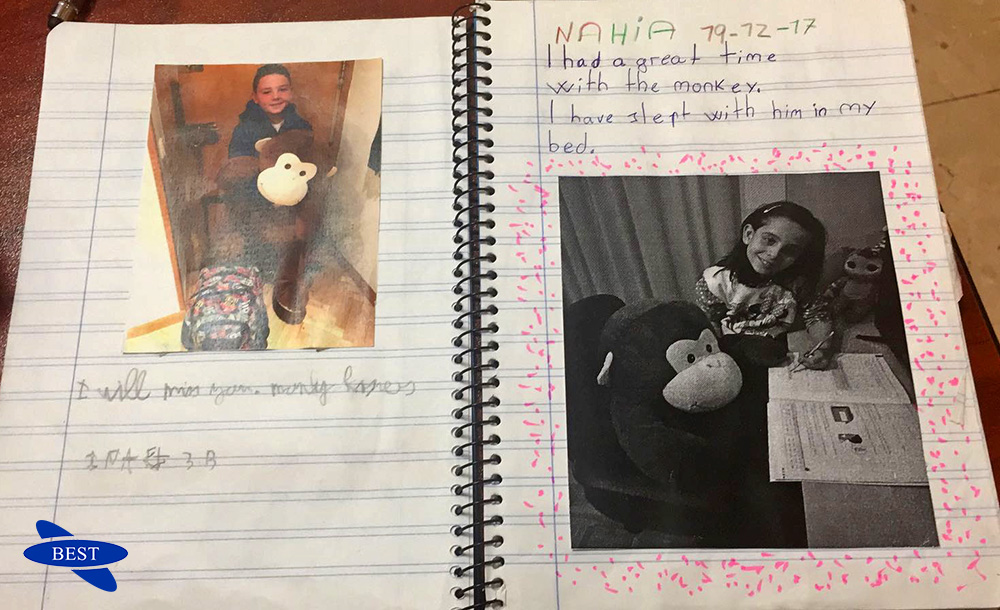 I will miss
3 B
BEST
NAHiA 19-12-17
I had a great time
with the monkey.
I have slept with him in my
bed.